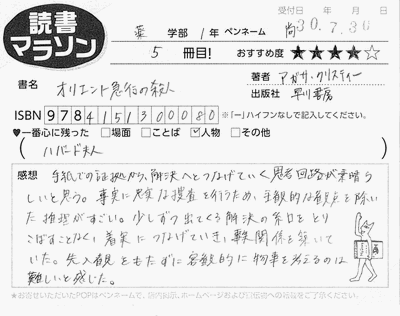 読書
マラソン
受付日 年 月 日
30.7.
薬 学部 1年 ペンネーム
5 冊目! おすすめ度 ★★★★☆
書名 オリエント急行の殺人
著者 アガサ・クリスティー
出版社 早川書房
ISBN 978 4151300080 ※「ー」ハイフンなしで記入してください。
♥一番心に残った □場面 □ことば ☑人物 □その他
(ハバード夫人
感想 手紙での証拠から、解決へとつなげていく思考回路が素晴ら
しいと思う。事実に忠実な捜査を行うため、主観的な観点を除い
た推理がすごい。少しずつ出てくる解決の糸口をとり
こぼすことなく、着実につなげていき、事実関係を築いて
いた。先入観をもたずに客観的に物事を考えるのは
難しいと感じた。
★お寄せいただいたPOPはペンネームで、店内掲示、ホームページおよび